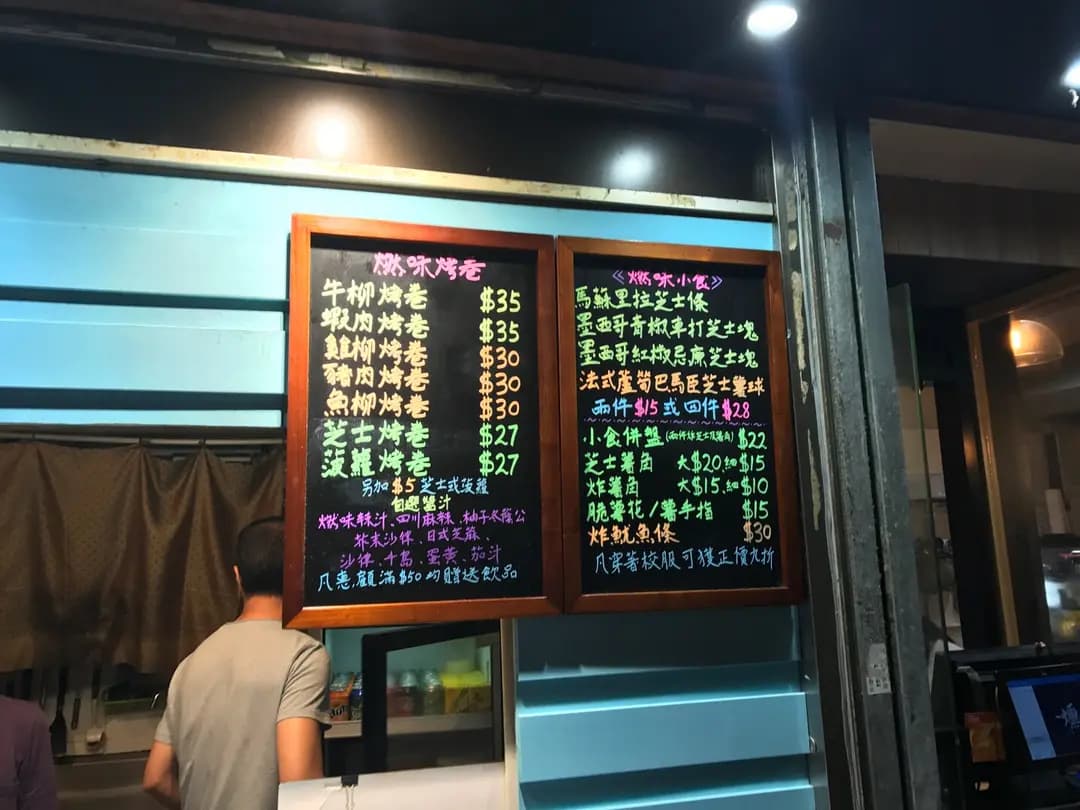 燃味烤卷
牛柳烤卷 $35
蝦肉烤卷 $35
雞柳烤卷 $30
豬肉烤卷 $30
魚柳烤卷 $30
芝士烤卷 $27
菠蘿烤卷 $27
另加 $5 芝士或菠蘿
自選醬汁
燃味辣汁、四川麻辣、柚子冬蔭公
芥末沙律、日式芝麻、
沙律、千島、蛋黃、茄汁
凡惠顧滿$50均贈送飲品
《燃味小食》
馬蘇里拉芝士條
墨西哥青椒車打芝士塊
墨西哥紅椒忌廉芝士塊
法式蘆筍巴馬臣芝士薯球
兩件$15或四件$28
小食併盤 $22
芝士薯角 大$20.細$15
炸薯角 大$15.細$10
脆薯花/薯手指 $15
炸魷魚條 $30
凡穿著校服可獲正價九折